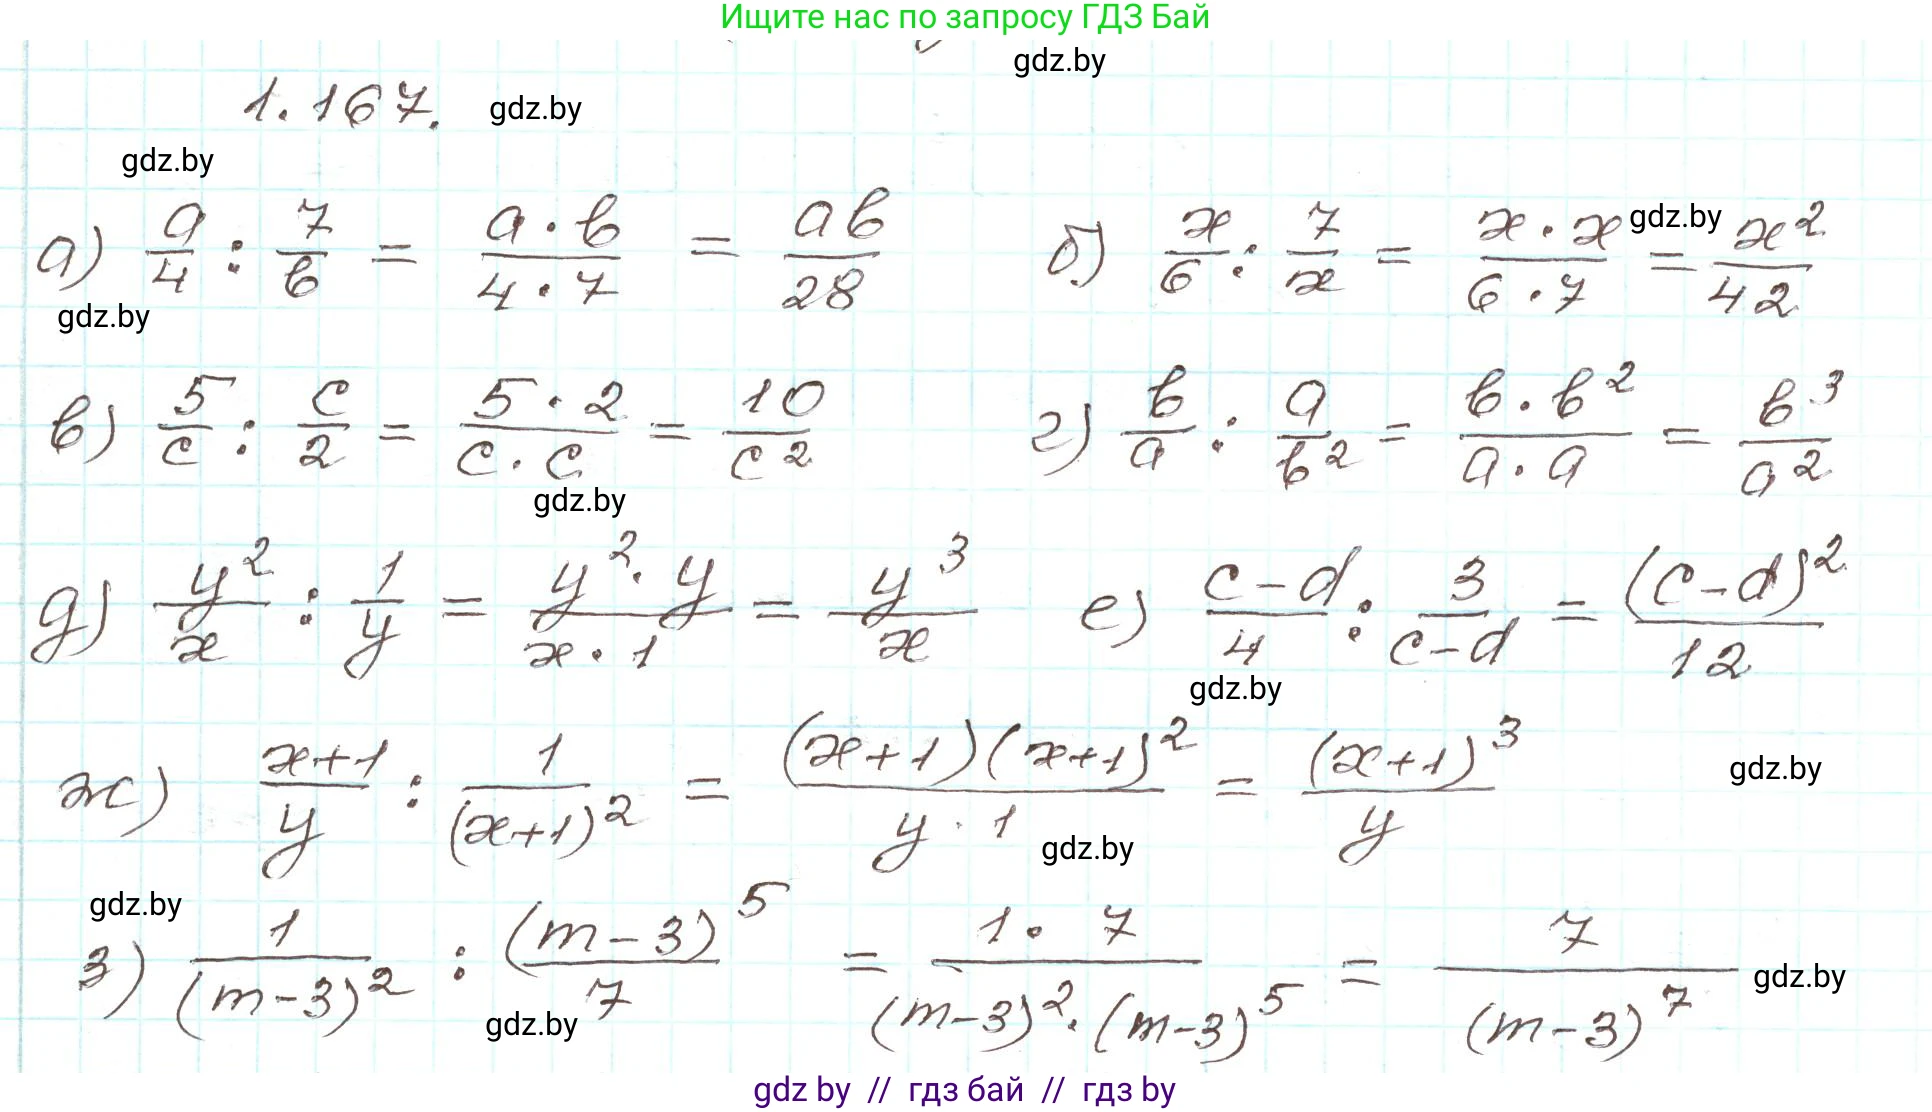 Ищите нас по запросу ГДЗ Бай
gdz.by
1.167. gdz.by
gdz.by
а) a/4 : 7/b = a·b/4·7 = ab/28 б) x/6 : 7/x = x·x/6·7 gdz.by = x²/42
gdz.by
в) 5/c : c/2 = 5·2/c·c = 10/c² г) b/a : a/b² = b·b²/a·a = b³/a²
gdz.by
д) y²/x : 1/y = y²·y/x·1 = y³/x е) c-d/4 : 3/c-d = (c-d)²/12
gdz.by
ж) x+1/y : 1/(x+1)² = (x+1)(x+1)²/y·1 = (x+1)³/y gdz.by
gdz.by
gdz.by
з) 1/(m-3)² : (m-3)⁵/7 = 1·7/(m-3)²·(m-3)⁵ = 7/(m-3)⁷ gdz.by
gdz.by
gdz by // гдз бай // гдз by